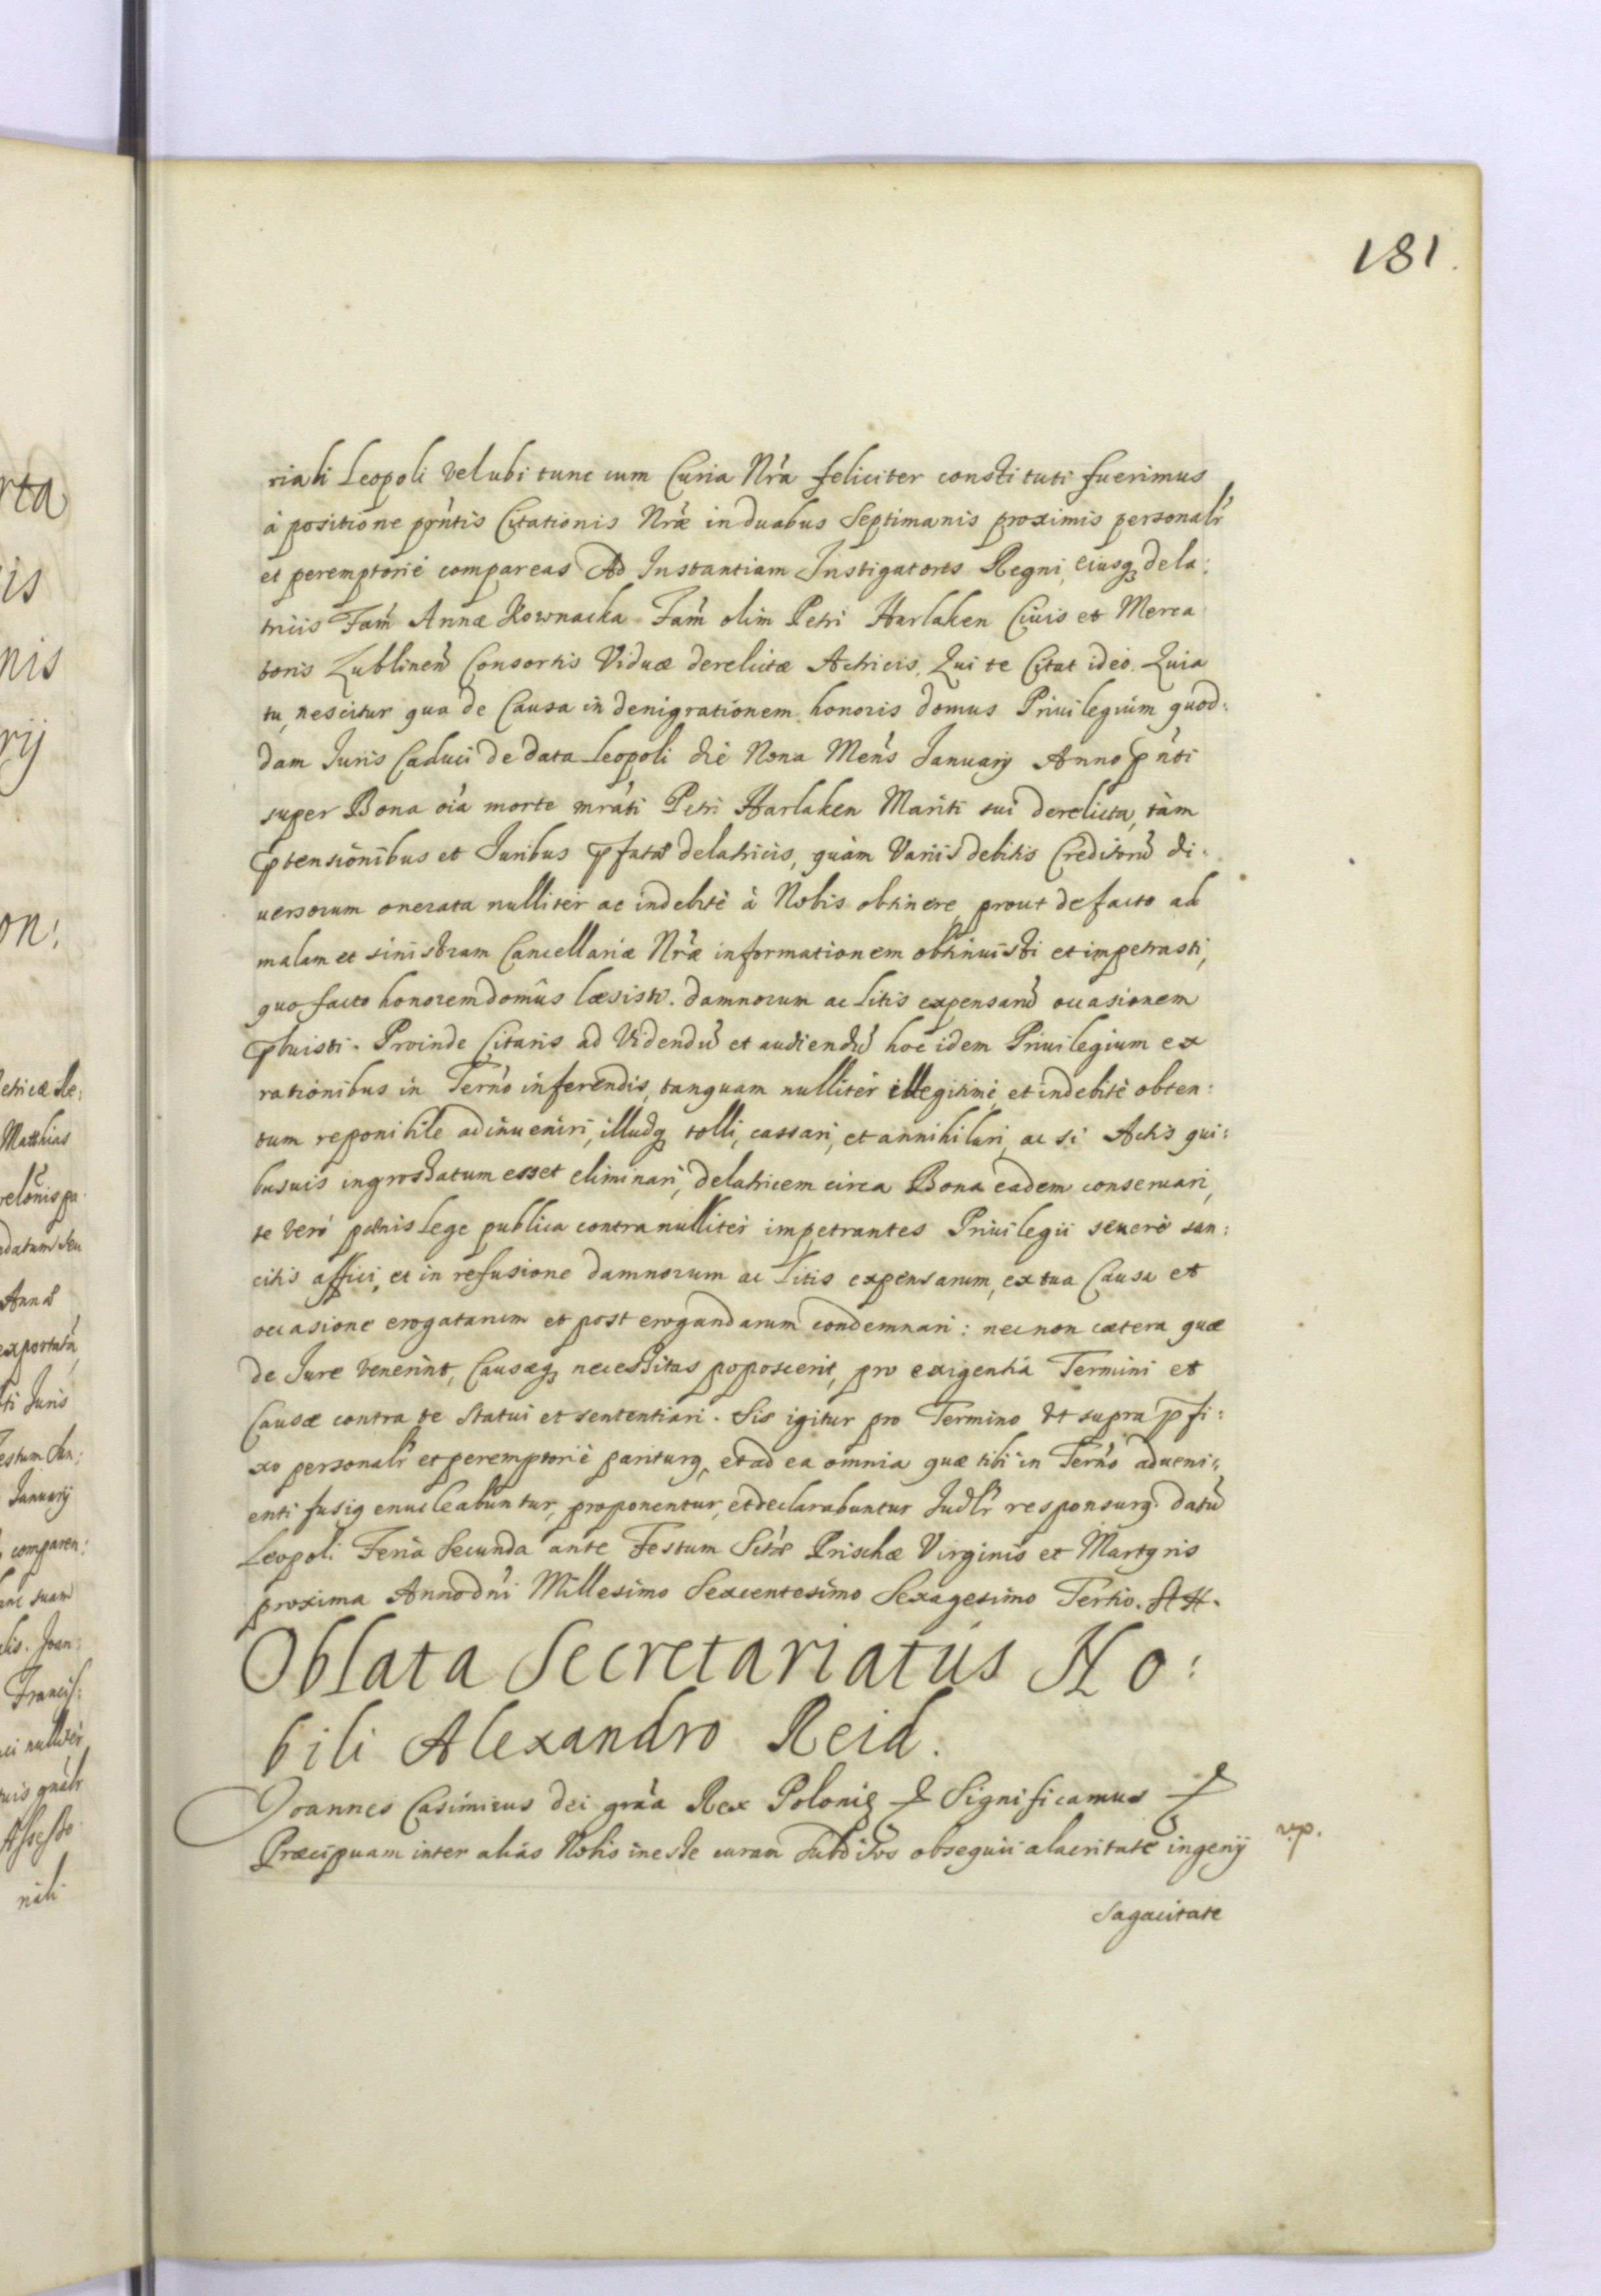 181.
riali Leopoli vel ubi tunc cum Curia Nrá feliciter constituti fuerimus
á positione pṅtis Citationis Nrǽ in duabus Septimanis proximis personalr̃
et peremptorié compareas Ad Instantiam Instigatoris Regni, eiusq; dela:
tricis Fam̃ Annæ Kownacka Fam̃ olim Petri Harlaken Ciuis et Merca
toris Lublinen̄ Consortis Viduæ derelictæ Actricis. Qui te Citat ideo. Quia
tu, nescitur qua de Causa in denigrationem honoris domus Priuilegium quod:
dam Iuris Caduci de data Leopoli die Nona Men̄s January Anno p̄nti
super Bona oia morte mrati Petri Harlaken Mariti sui derelicta, tàm
p̄tensionibus et Juribus p̄fatæ delatricis, quàm Variis debitis Creditorū di:
uersorum onerata nulliter ac indebitè à Nobis obtinere, prout de facto ad
malam et sinistram Cancellariæ Nræ informationem obtinuisti et impetrasti,
quo facto honorem domûs læsisti. damnorum ac litis expensarū occasionem
p̄buisti. Proinde Citaris ad Videndū et audiendū hoc idem Priuilegium ex
rationibus in Terno inferendis, tanquam nulliter illegitimè, et indebitè obten:
tum reponibile adinueniri, illudq; tolli, cassari, et annihilari, ac si Actis qui:
busuis ingrossatum esset eliminari, delatricem circa Bona eadem conseruari,
te verò pœnis lege publica contra nulliter impetrantes Priuilegii seuerè san:
citis affici, et in refusione damnorum ac litis expensarum, ex tua Causa et
occasione erogatarum et post erogandarum condemnari: nec non cætera quæ
de Jure venerint, Causæq; necessitas poposcerit, pro exigentia Termini et
Causæ contra te statui et sententiari. Sis igitur pro Termino Ut supra p̄fi:
xo personalr̃ et peremptoriè pariturq, et ad ea omnia quæ tibi in Terno adueni:
enti fusiq enucleabuntur, proponentur, et declarabuntur Judlr̃ responsurq. datū
Leopoli Feria Secunda ante Festum Sctæ Prischæ Virginis et Martyris
proxima Anno dn̄i Millesimo Sexcentesimo Sexagesimo Tertio.
Oblata Secretariatus No:
bili Alexandro Reid.
Joannes Casimirus dei gra̅a Rex Polonię & Significamus &
Præcipuam inter alias Nobis inesse curam subditos obsequii alacritate ingenij
sagacitate